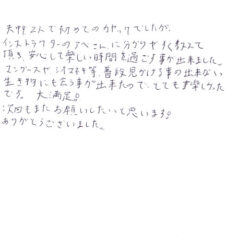 夫婦2人で初めてのカヤックでしたが、
インストラクターのアベさんに分かりやすく教えて
頂き、安心して楽しい時間を過ごす事が出来ました。
マングースや、シイラ等、普段見かける事の出来ない
生き物にも会う事が出来たので、とても楽しかった
です。 大満足。
次回もまたお願いしたいと思います。
ありがとうございました。